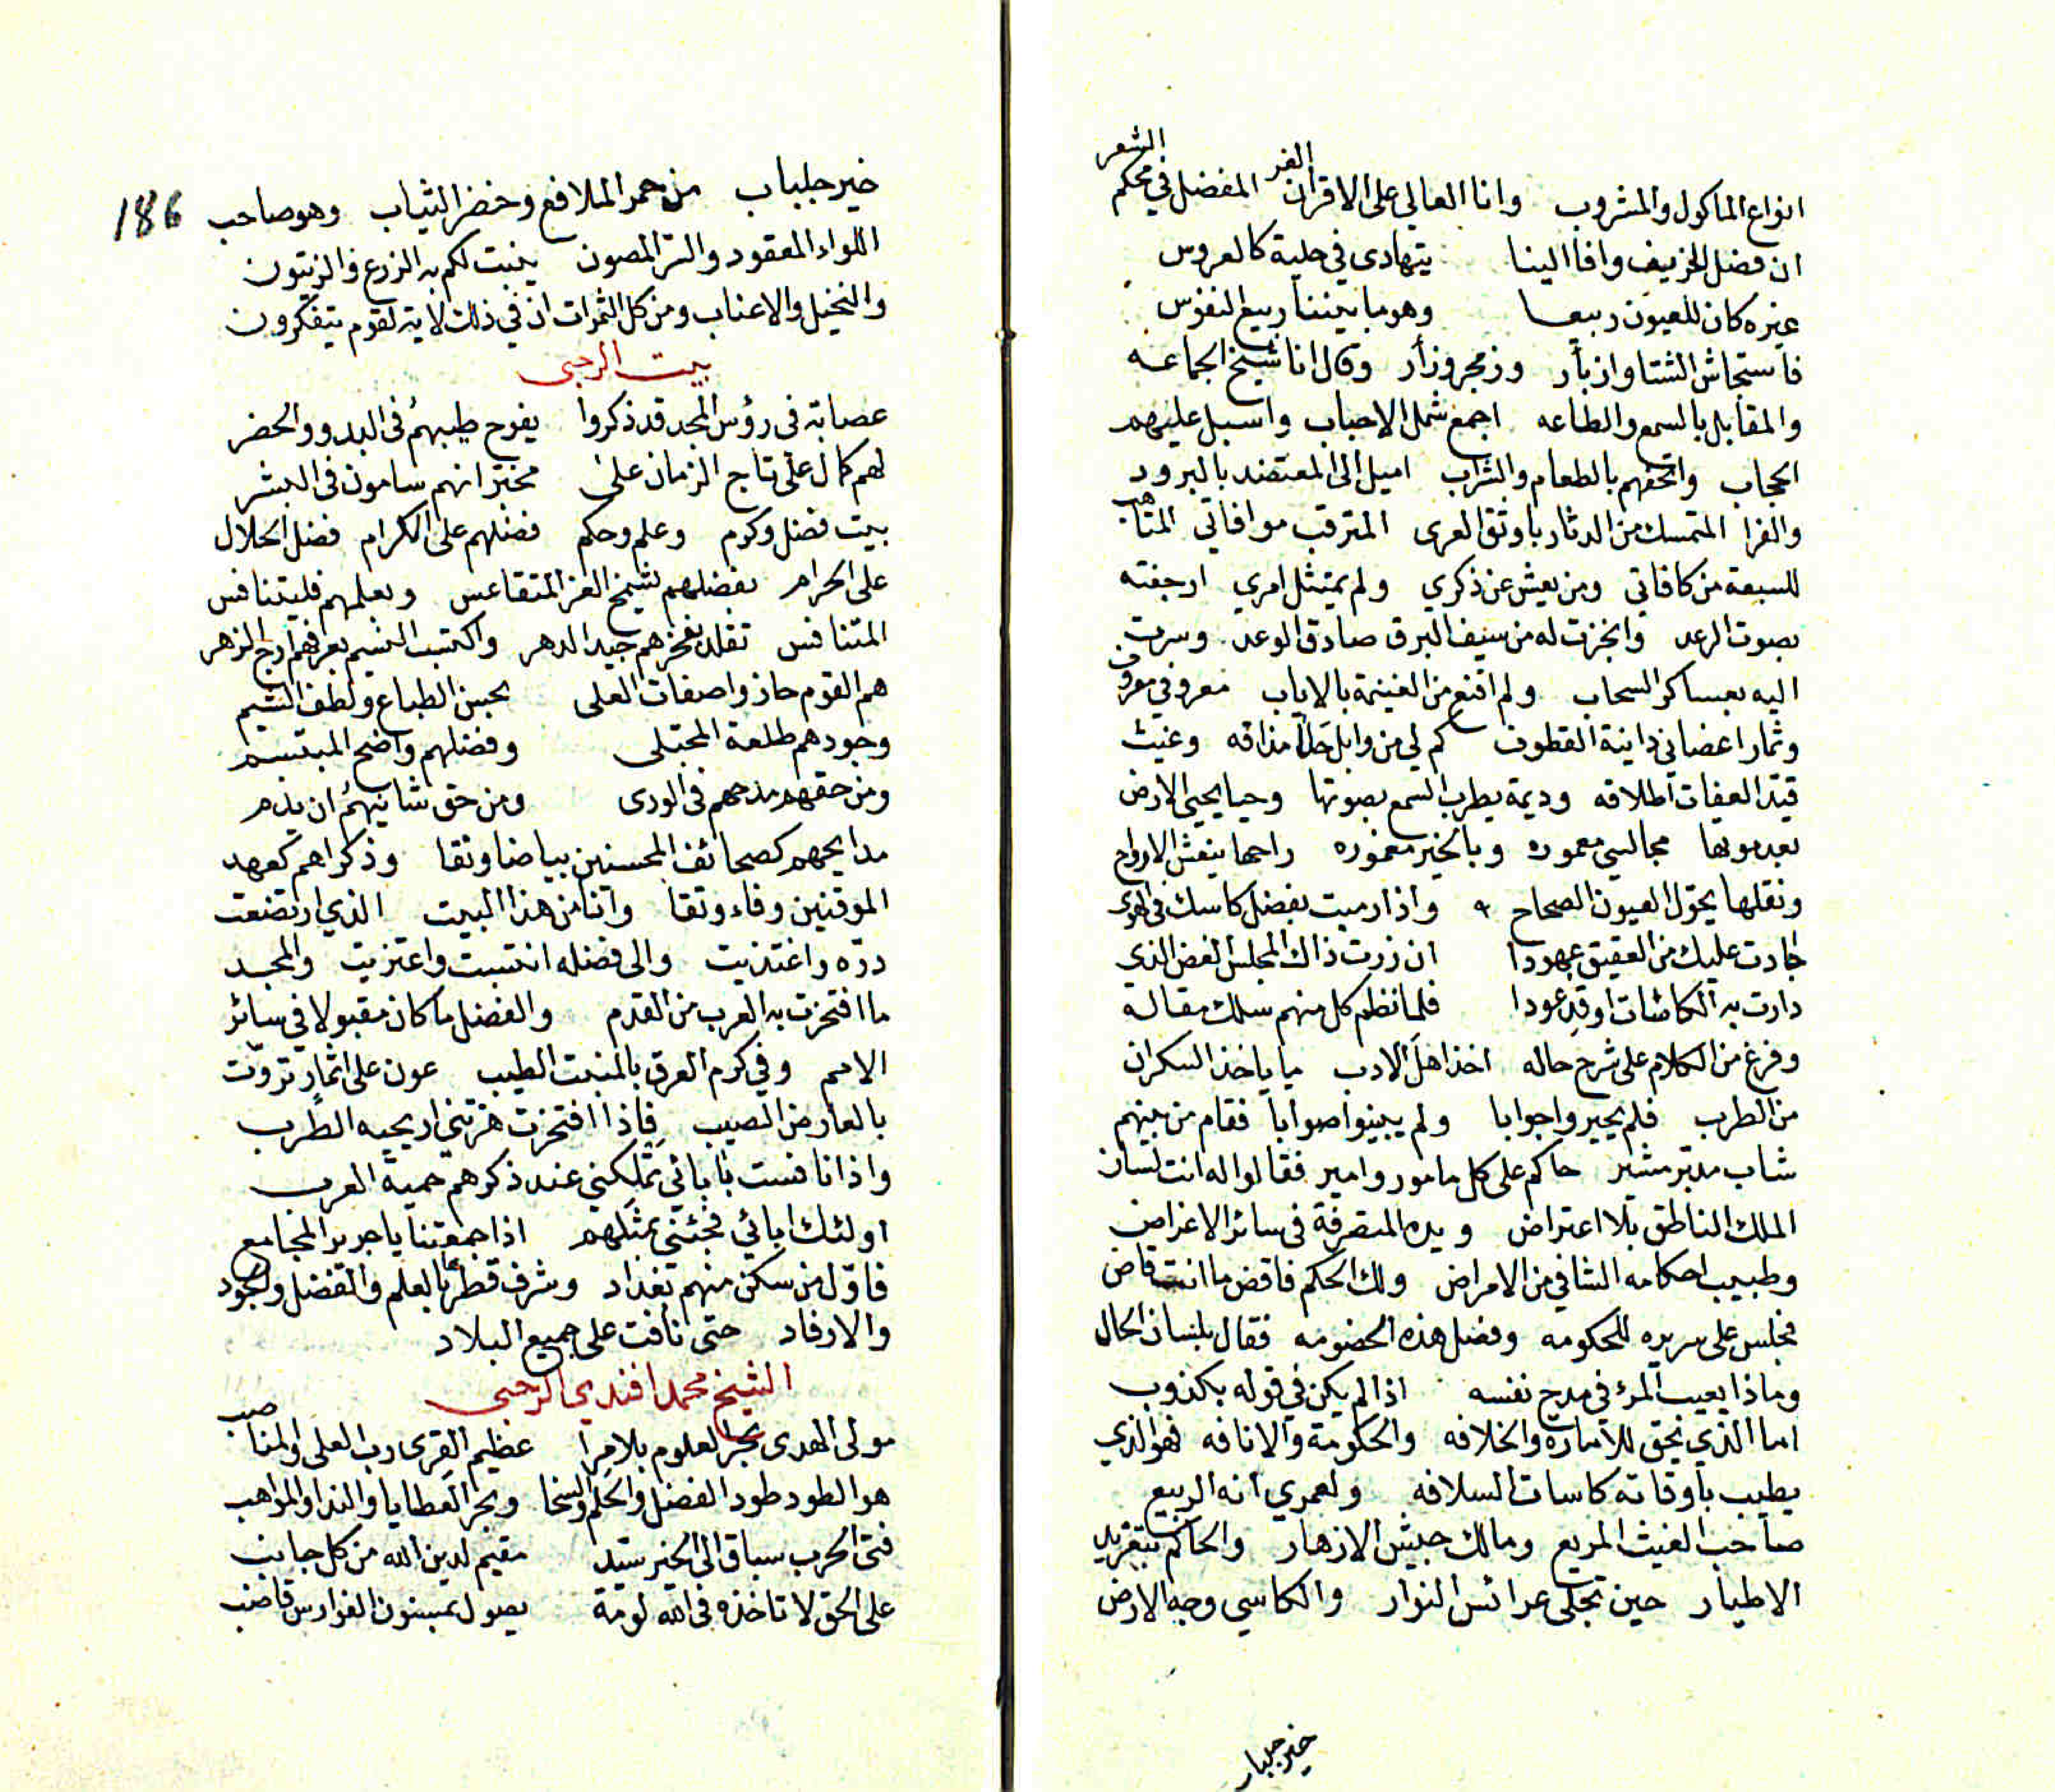 انواع الماكول والمشروب وانا العالي على الاقران الغر المفضل في محكم الشعر
ان فضل الخريف وافا الينا يتهادى في حلية كالعروس
غيره كان للعيون ربيعا وهو ما بيننا ربيع النفوس
فاستجاش الشتا وازبأر وزمجر وزأر وقال انا شيخ الجماعه
والمقابل بالسمع والطاعه اجمع شمل الاحباب واسبل عليهم
الحجاب واتحفهم بالطعام والشراب اميل الى المعتضد بالبرود
والفرا المتمسك من الدثار باوثق العرى المترقب موافاتي المتاهب
للسبعة من كافاتي ومن يعش عن ذكري ولم يمتثل امري ارجفته
بصوت الرعد وانجزت له من سيف البرق صادق الوعد وسرت
اليه بعساكر السحاب ولم اقنع من الغنيمة بالاياب معروفي معروف
وثمار اغصاني دانية القطوف كم لي من وابل حلا مذاقه وغيث
قيد العفات اطلاقه وديمة يطرب السمع بصوتها وحيا يحيى الارض
بعد موتها مجالسي معموره وبالخير مغموره راحها ينعش الارواح
ونقلها يحول العيون الصحاح واذا رميت بفضل كاسك في الهوى
جادت عليك من العقيق عهودا ان زرت ذاك المجلس الغض الذي
دارت به الكاسات اوقد عودا فلما نظم كل منهم سلك مقاله
وفرغ من الكلام على شرح حاله اخذ اهل الادب ما ياخذ السكران
من الطرب فلم يحيروا جوابا ولم يبينوا صوابا فقام من بينهم
شاب مدبر مشير حاكم على كل مامور وامير فقالوا له انت لسان
الملك الناطق بلا اعتراض ويده المتصرفة في سائر الاغراض
وطبيب احكامه الشافي من الامراض ولك الحكم فاقض ما انت قاض
فجلس على سريره للحكومه وفصل هذه الخصومه فقال بلسان الحال
وماذا يعيب المرء في مدح نفسه اذا لم يكن في قوله بكذوب
اما الذي يحق للامارة والخلافه والحكومة والانافه فهو الذي
يطيب باوقاته كاسات السلافه ولعمري انه الربيع
صاحب الغيث المريع ومالك جيش الازهار والحاكم بتغريد
الاطيار حين تجلى عرائس النوار والكاسي وجه الارض
خير جلباب
186
خير جلباب من حمر الملافع وخضر الثياب وهو صاحب
اللواء المعقود والسر المصون ينبت لكم به الزرع والزيتون
والنخيل والاعناب ومن كل الثمرات ان في ذلك لاية لقوم يتفكرون
بيت الرحبى
عصابة فى رؤس المجد قد ذكروا يفوح طيبهم فى البدو والحضر
لهم كمال على تاج الزمان على مخبرا انهم سامون فى البشر
بيت فضل وكرم وعلم وحكم فضلهم على الكرام فضل الحلال
على الحرام بفضلهم يشمخ العز المتقاعس وبعلمهم فليتنافس
المتنافس تقلد بفخرهم جيد الدهر واكتسب النسيم بعرفهم ارج الزهر
هم القوم حازوا صفات العلى بحسن الطباع ولطف الشيم
وجودهم طلعة المجتلى وفضلهم واضح المبتسم
ومن حقهم مدحهم فى الورى ومن حق شانيهم ان يذم
مدايحهم كصحائف المحسنين بياضا ونقا وذكراهم كعهد
الموقنين وفاء وتقا وانا من هذا البيت الذي ارتضعت
دره واغتذيت والى فضله انتسبت واعتزيت والمجد
ما افتخرت به العرب من القدم والفضل ما كان مقبولا في سائر
الامم وفي كرم العرق بالمنبت الطيب عون على اثمار تروت
بالعارض الصيب فاذا افتخرت هزتني اريحية الطرب
واذا نافست بابائي تملكني عند ذكرهم حمية العرب
اولئك ابائي فجئني بمثلهم اذا جمعتنا يا جرير المجامع
فاول من سكن منهم بغداد وشرف قطرها بالعلم والفضل والجود
والارفاد حتى نافت على جميع البلاد
الشيخ محمد افندي الرحبى
مولى الهدى بحر العلوم بلا مرا عظيم القرى رب العلى والمناصب
هو الطود طود الفضل والحلم والسخا وبحر العطايا والندا والمواهب
فتى الحرب سباق الى الخير سيد مقيم لدين الله من كل جانب
على الحق لا تاخذه فى الله لومة يصول بمسنون الغرارين قاضب